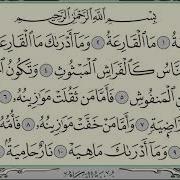 بِسْمِ ٱللَّهِ ٱلرَّحْمَٰنِ ٱلرَّحِيمِ
ةُ ١ مَا ٱلْقَارِعَةُ ٢ وَمَآ أَدْرَىٰكَ مَا ٱلْقَارِعَ
نَّاسُ كَٱلْفَرَاشِ ٱلْمَبْثُوثِ ٤ وَتَكُونُ ٱ
ٱلْمَنفُوشِ ٥ فَأَمَّا مَن ثَقُلَتْ مَوَٰزِينُهُۥ ٦ فَهُوَ
رَّاضِيَةٍ ٧ وَأَمَّا مَنْ خَفَّتْ مَوَٰزِينُهُۥ ٨ فَأُمُّهُۥ
٩ وَمَآ أَدْرَىٰكَ مَا هِيَهْ ١٠ نَارٌ حَامِيَةٌۢ ١١